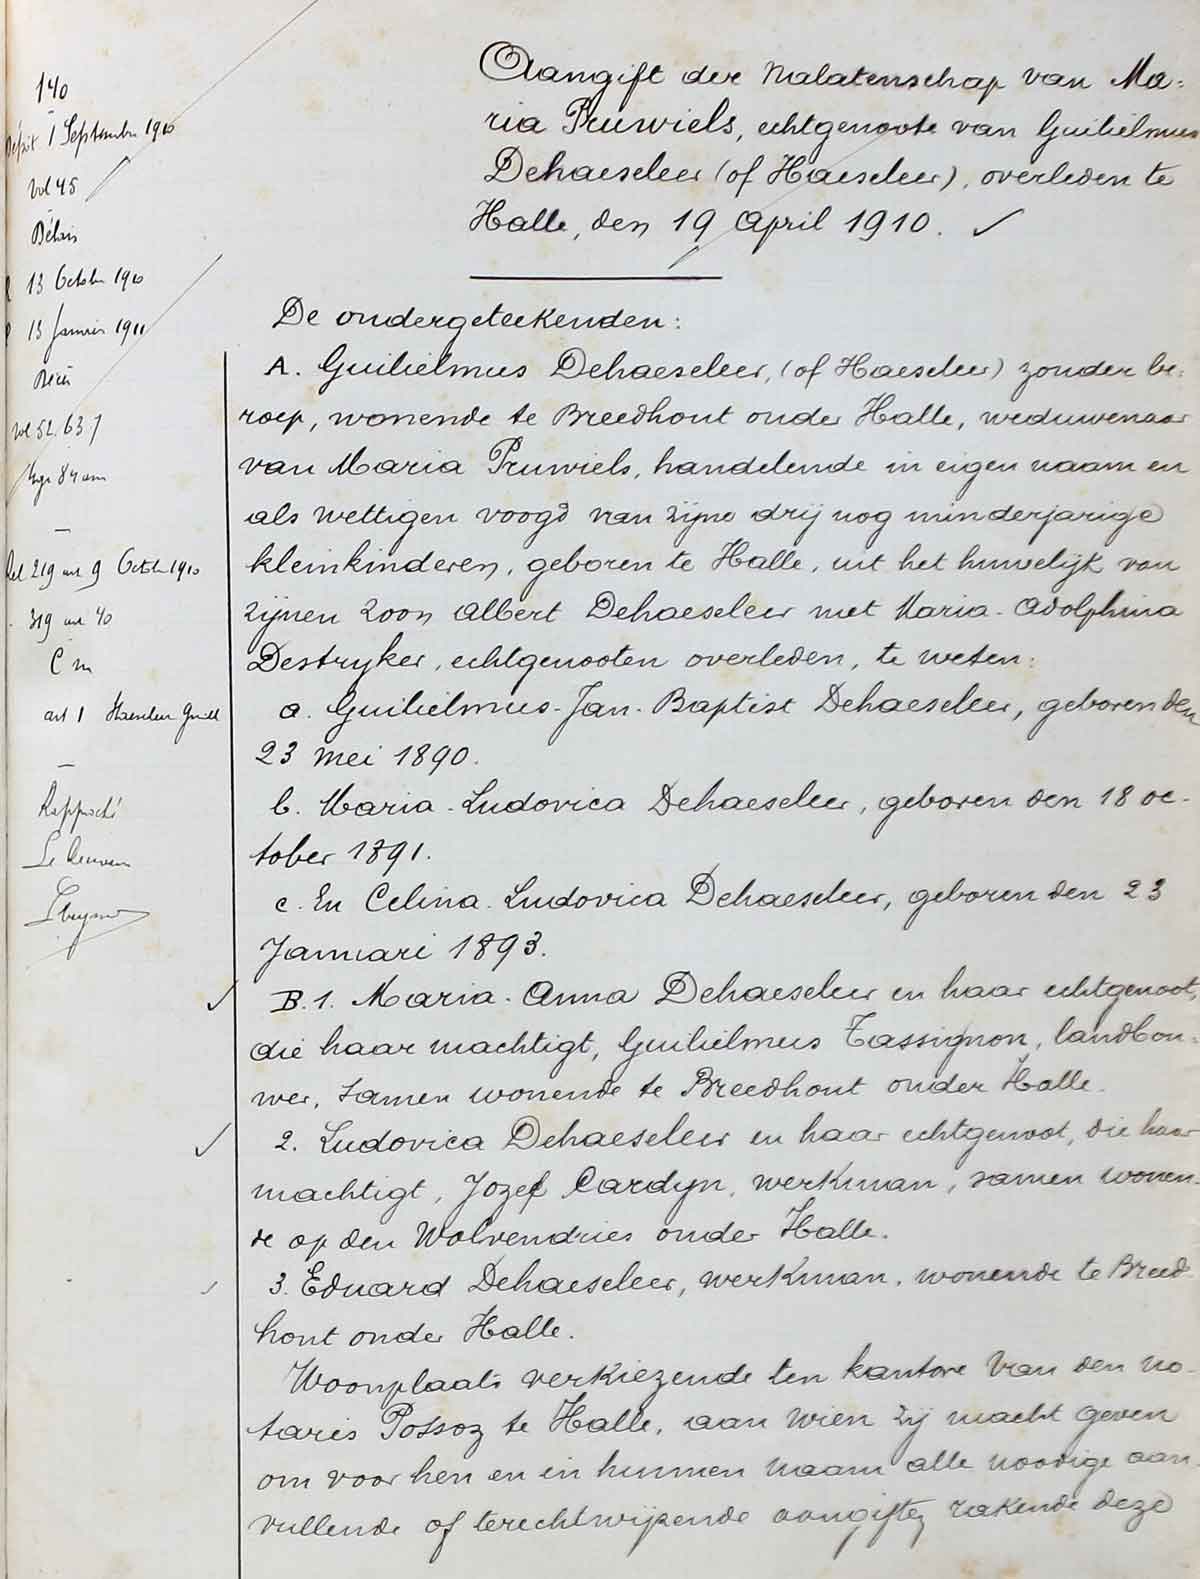 140
1 Septembre 1910
Vol 45
Délais
13 Octobre 1910
13 Janvier 1911
vol 52. 63.7
219 art 9 Octobre 1910
319 art 40
C m
art 1 Haeseleer Guill
Aangift der Nalatenschap van Ma-
ria Pruwiels, echtgenoote van Guilielmus
Dehaeseleer (of Haeseleer), overleden te
Halle, den 19 April 1910.
De ondergeteekenden:
A. Guilielmus Dehaeseleer, (of Haeseleer) zonder be-
roep, wonende te Breedhout onder Halle, weduwenaar
van Maria Pruwiels, handelende in eigen naam en
als wettigen voogd van zijne drij nog minderjarige
kleinkinderen, geboren te Halle, uit het huwelijk van
zijnen zoon Albert Dehaeseleer met Maria-Adolphina
Destryker, echtgenooten overleden, te weten:
a. Guilielmus-Jan-Baptist Dehaeseleer, geboren den
23 Mei 1890.
b. Maria-Ludovica Dehaeseleer, geboren den 18 oc-
tober 1891.
c. En Celina-Ludovica Dehaeseleer, geboren den 23
Januari 1893.
B.1. Maria-Anna Dehaeseleer en haar echtgenoot,
die haar machtigt, Guilielmus Tassignon, landbou-
wer, samen wonende te Breedhout onder Halle.
2. Ludovica Dehaeseleer en haar echtgenoot, die haar
machtigt, Jozef Cardyn, werkman, samen wonen-
de op den Wolvendries onder Halle.
3. Eduard Dehaeseleer, werkman, wonende te Breed-
hout onder Halle.
Woonplaats verkiezende ten kantore van den no-
taris Possoz te Halle, aan wien zij macht geven
om voor hen en in hunnen naam alle noodige aan-
vullende of terechtwijzende aangiften rakende deze